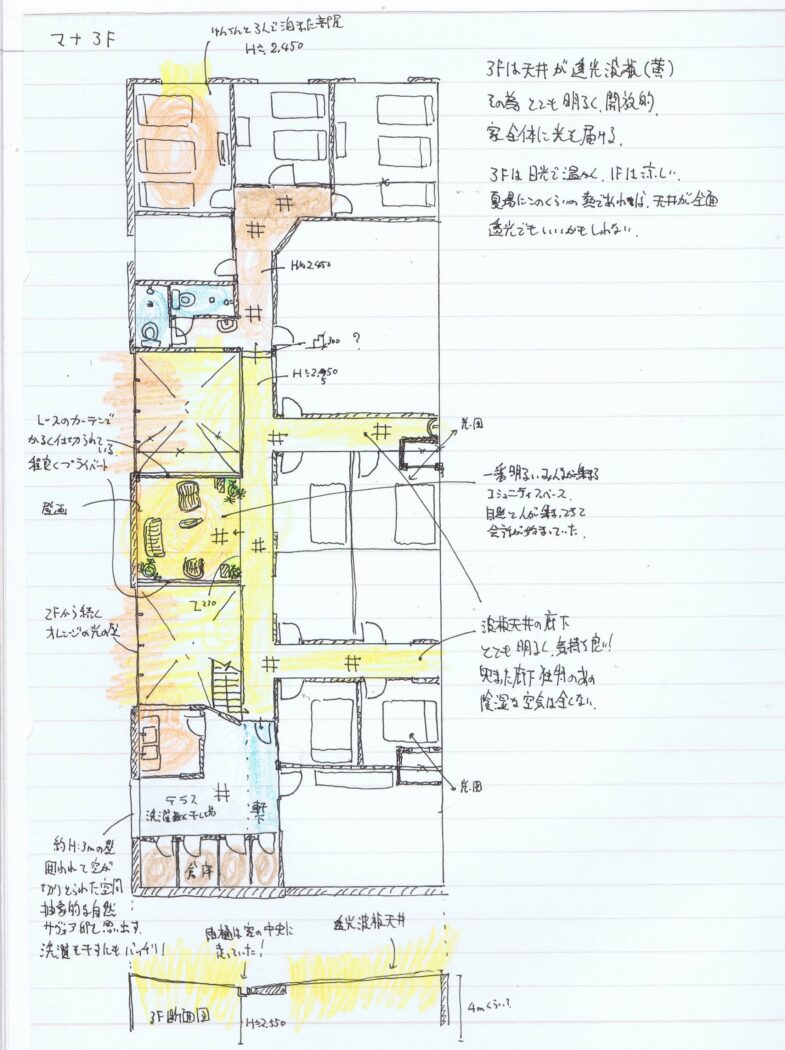 マナ 3F
けんさんと3人で泊まった部屋
H≒2,450
3Fは天井が透光波板(黄)
その為とても明るく、開放的。
家全体に光を届ける。
3Fは日光で温かく、1Fは涼しい。
夏場にこのくらいの熱であれば、天井が全面
透光でもいいかもしれない。
H≒2,450
300 ?
光・風
レースのカーテンで
かるく仕切られている
程良くプライバート
壁画
一番明るい、みんなが集まる
コミュニティスペース。
自然と人が集まってきて
会話が始まっていた。
2Fから続く
オレンジの光の壁
波板天井の廊下
とても明るく、気持ち良い!
奥まった廊下独特のあの
陰湿な空気は全くない。
光・風
テラス
洗濯物干し場
軒下
倉庫
約H:3mの壁
囲われて空が
切りとられた空間
抽象的な自然
サヴォア邸を思い出す。
洗濯を干すにもバッチリ!
雨樋は家の中央に
走っていた!
透光波板天井
3F断面図
H≒2,550
4mくらい?